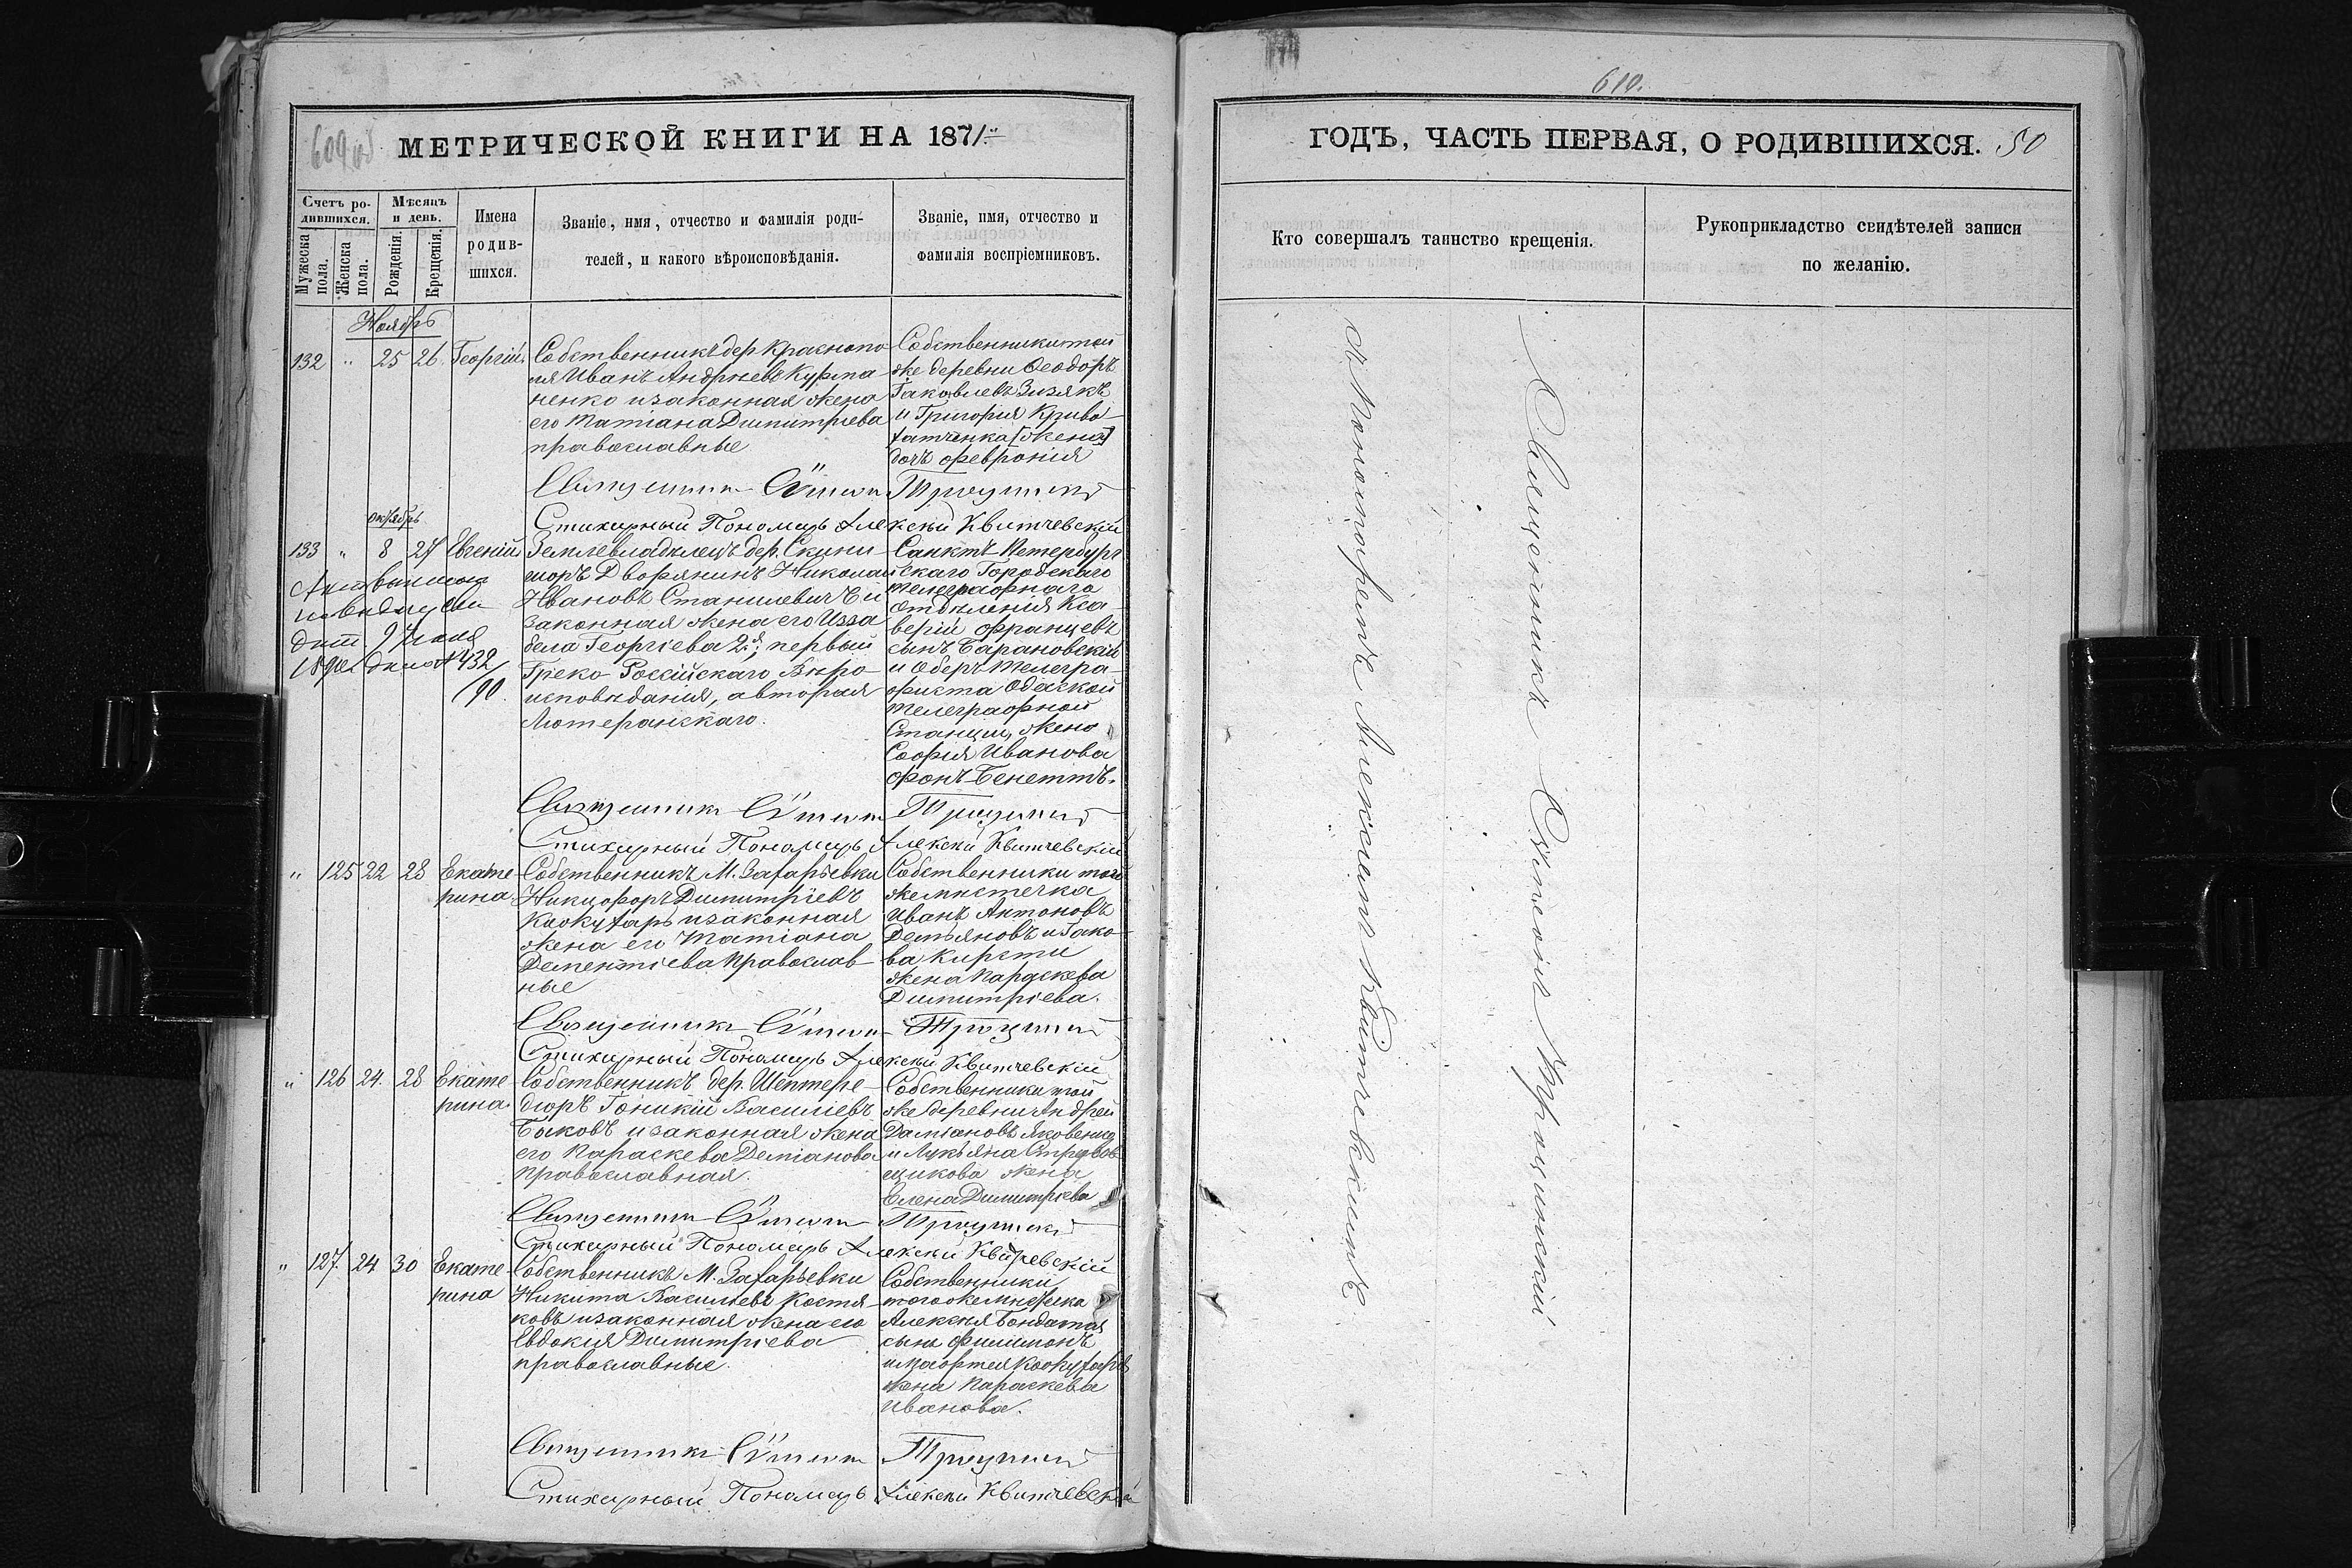 609об
МЕТРИЧЕСКОЙ КНИГИ НА 1871.
Счетъ ро-
дившихся.
Мѣсяцъ
и день.
Мужеска
пола.
Женска
пола.
Рожденія.
Крещенія.
Имена
родив-
шихся.
Званіе, имя, отчество и фамилія роди-
телей, и какого вѣроисповѣданія.
Званіе, имя, отчество и
фамилія воспріемниковъ.
Ноябрь
132 " 25 26 Георгій.
Собственникъ дер. Краснопо
ля Иванъ Андрѣевъ Курта
ненко и законная жена
его Татіана Димитріева
православные
Собственники той
же деревни Ѳеодоръ
Іаковлевъ Зизякъ
и Григорія Криво
хатченка [жена]
дочь Февронія
Священникъ Сѵмеонъ Троицкій
Стихарный Пономарь Алексѣй Квитчевскій
октябрь
133 " 8 27 Евгеній
Актъ
1890 г. дило № 432/90.
Землевладѣлецъ дер. Скини
моръ Дворянинъ Николай
Ивановъ Станилевичъ и
законная жена его Изза
бела Георгіева 2я, первый
Греко Россійскаго Вѣро
исповѣданія, а вторая
Лютеранскаго.
Санктъ-Петербург
скаго Городскаго
телеграфнаго
отдѣленія Кса
верій Францевъ
сынъ Барановскій
и Оберъ-телегра-
фиста Одеской
телеграфной
Станціи, жена
Софія Иванова
фонъ-Бенеттъ.
Священникъ Сѵмеонъ Троицкій
Стихарный Пономарь Алексѣй Квитчевскій
" 125 22 28 Екате
рина
Собственникъ М. Захарьевки
Никифоръ Димитріевъ
Кофкухарь и законная
жена его Татіана
Дементіева православ
ные
Собственники того
же мѣстечка
Иванъ Антоновъ
Демьяновъ и Іако
ва Кирсти
жена Параскева
Димитріева.
Священникъ Сѵмеонъ Троицкій
Стихарный Пономарь Алексѣй Квитчевскій
" 126 24. 28 Екате
рина
Собственникъ дер. Шептере
дюръ Іоникій Василіевъ
Быковъ и законная жена
его Параскева Деміанова
православная.
Собственники той
же деревни Андрей
Даміановъ Яковенко
и Лукьяна
щикова жена
Елена Димитріева
Священникъ Сѵмеонъ Троицкій
Стихарный Пономарь Алексѣй Квитчевскій
" 127. 24 30 Екате
рина
Собственникъ М. Захарьевки
Никита Василіевъ Костя
ковъ и законная жена его
Евдокія Димитріева
православные.
Собственники
того же мѣстечка
Алексѣя Бондаря
сынъ Филимонъ
и Кофкухаря
жена Параскева
Иванова.
Священникъ Сѵмеонъ Троицкій
Стихарный Пономарь Алексѣй Квитчевскій
610.
ГОДЪ, ЧАСТЬ ПЕРВАЯ, О РОДИВШИХСЯ. 50
Кто совершалъ таинство крещенія.
Рукоприкладство свидѣтелей записи
по желанію.
Священникъ Сѵмеонъ Троицкій
съ Пономаремъ Алексѣемъ Квитчевскимъ